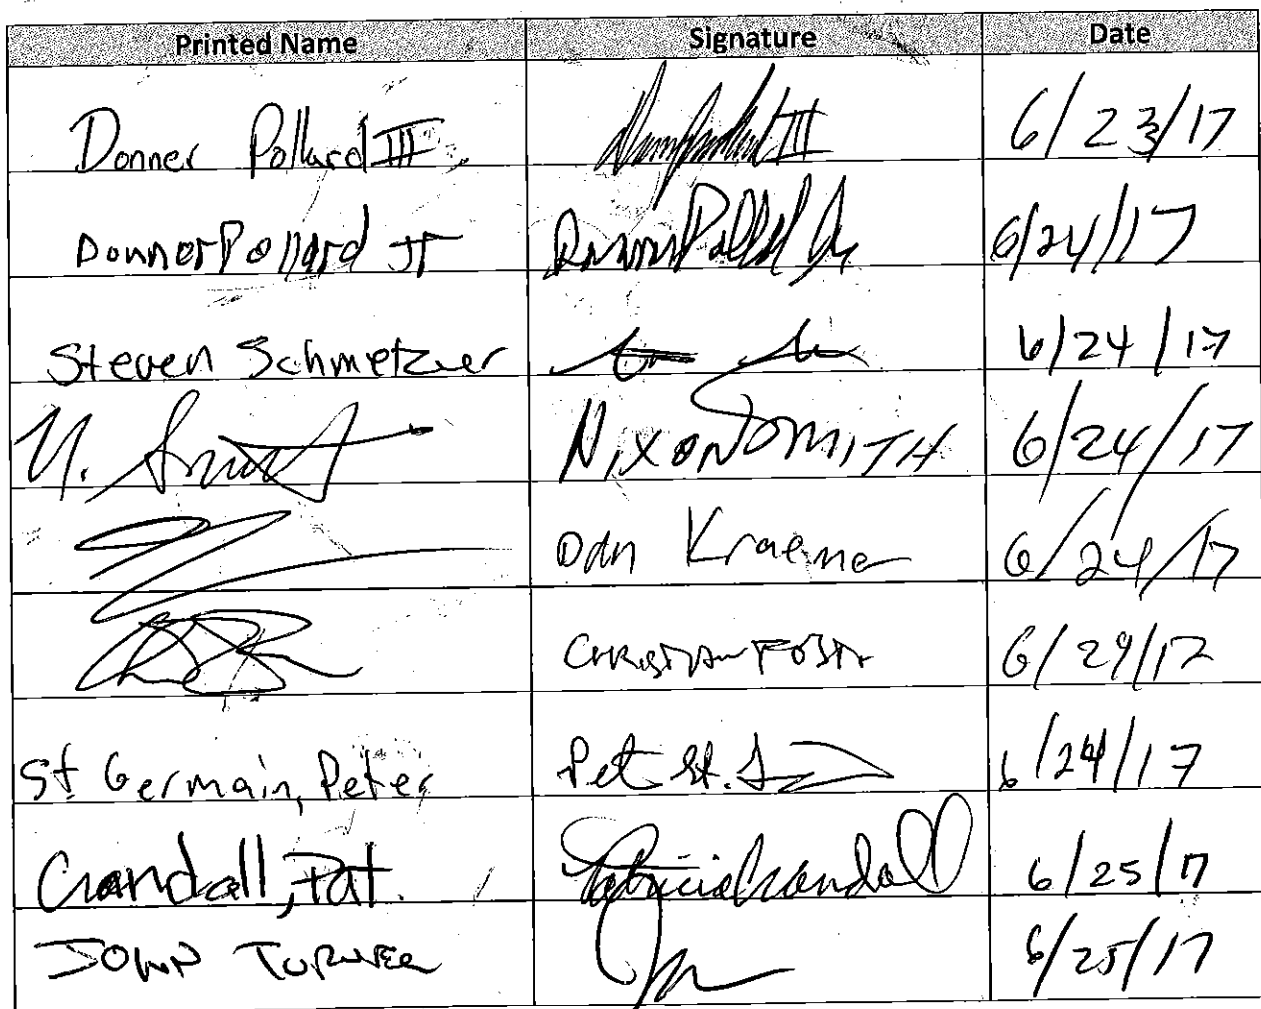 Printed Name Signature Date
Donner Pollard III 6/23/17
Donner Pollard Jr Donner Pollard Jr 6/24/17
Steven Schmetzer 6/24/17
N. Smith NIXON SMITH 6/24/17
Dan Kraemer 6/24/17
6/29/17
St Germain, Peter Pet St. G 6/24/17
Crandall, Pat. Patricia Crandall 6/25/17
JOHN TURNER 6/25/17